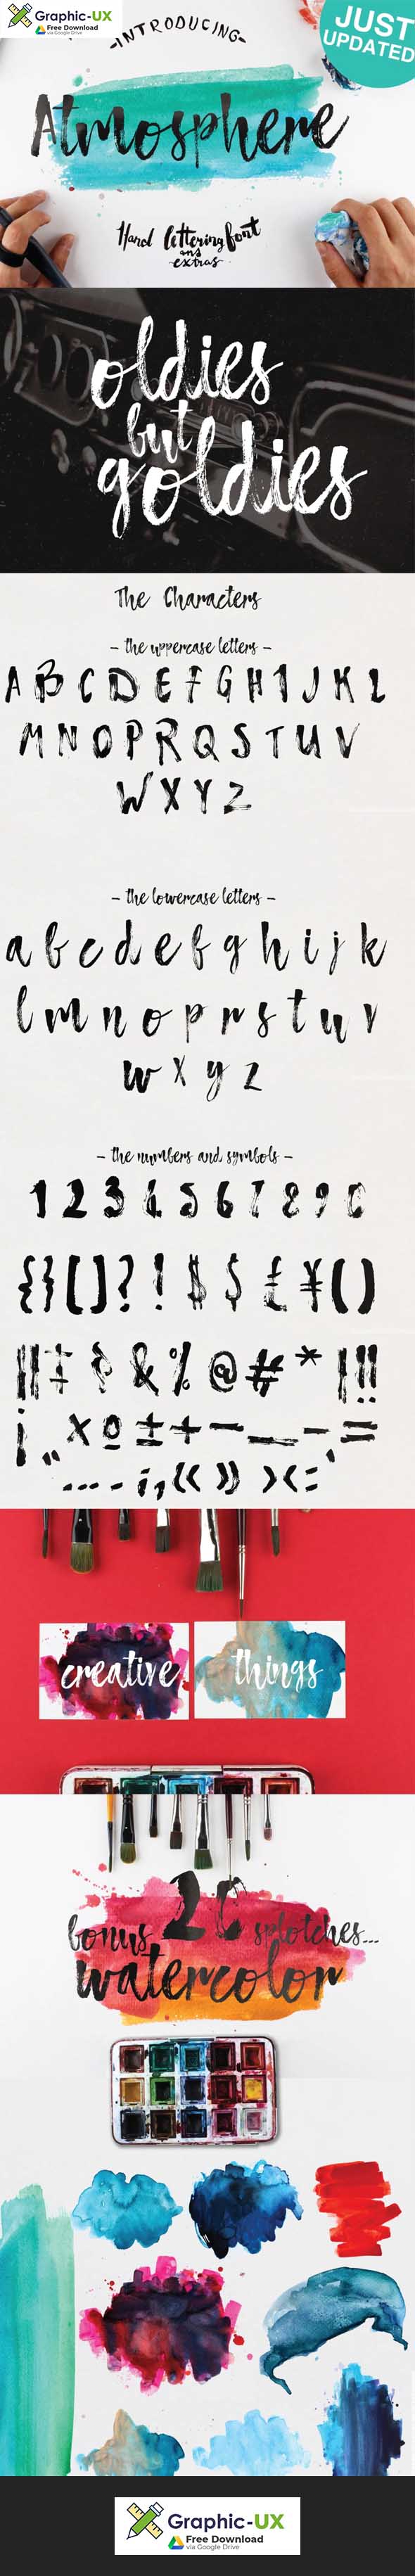 Graphic-UX
Free Download
via Google Drive
-INTRODUCING-
JUST
UPDATED
Atmosphere
Hand lettering font
ans
-extras-
oldies
but
goldies
The Characters
- the uppercase letters -
A B C D E F G H I J K L
M N O P R Q S T U V
W X Y Z
- the lowercase letters -
a b c d e f g h i j k
l m n o p r s t u v
w x y z
- the numbers and symbols -
1 2 3 4 5 6 7 8 9 0
{ } [ ] ? ! $ $ £ ¥ ( )
& % @ # * | !!
¡ " x º ± + - _ – =
creative
things
bonus 20 splotches...
watercolor
Graphic-UX
Free Download
via Google Drive